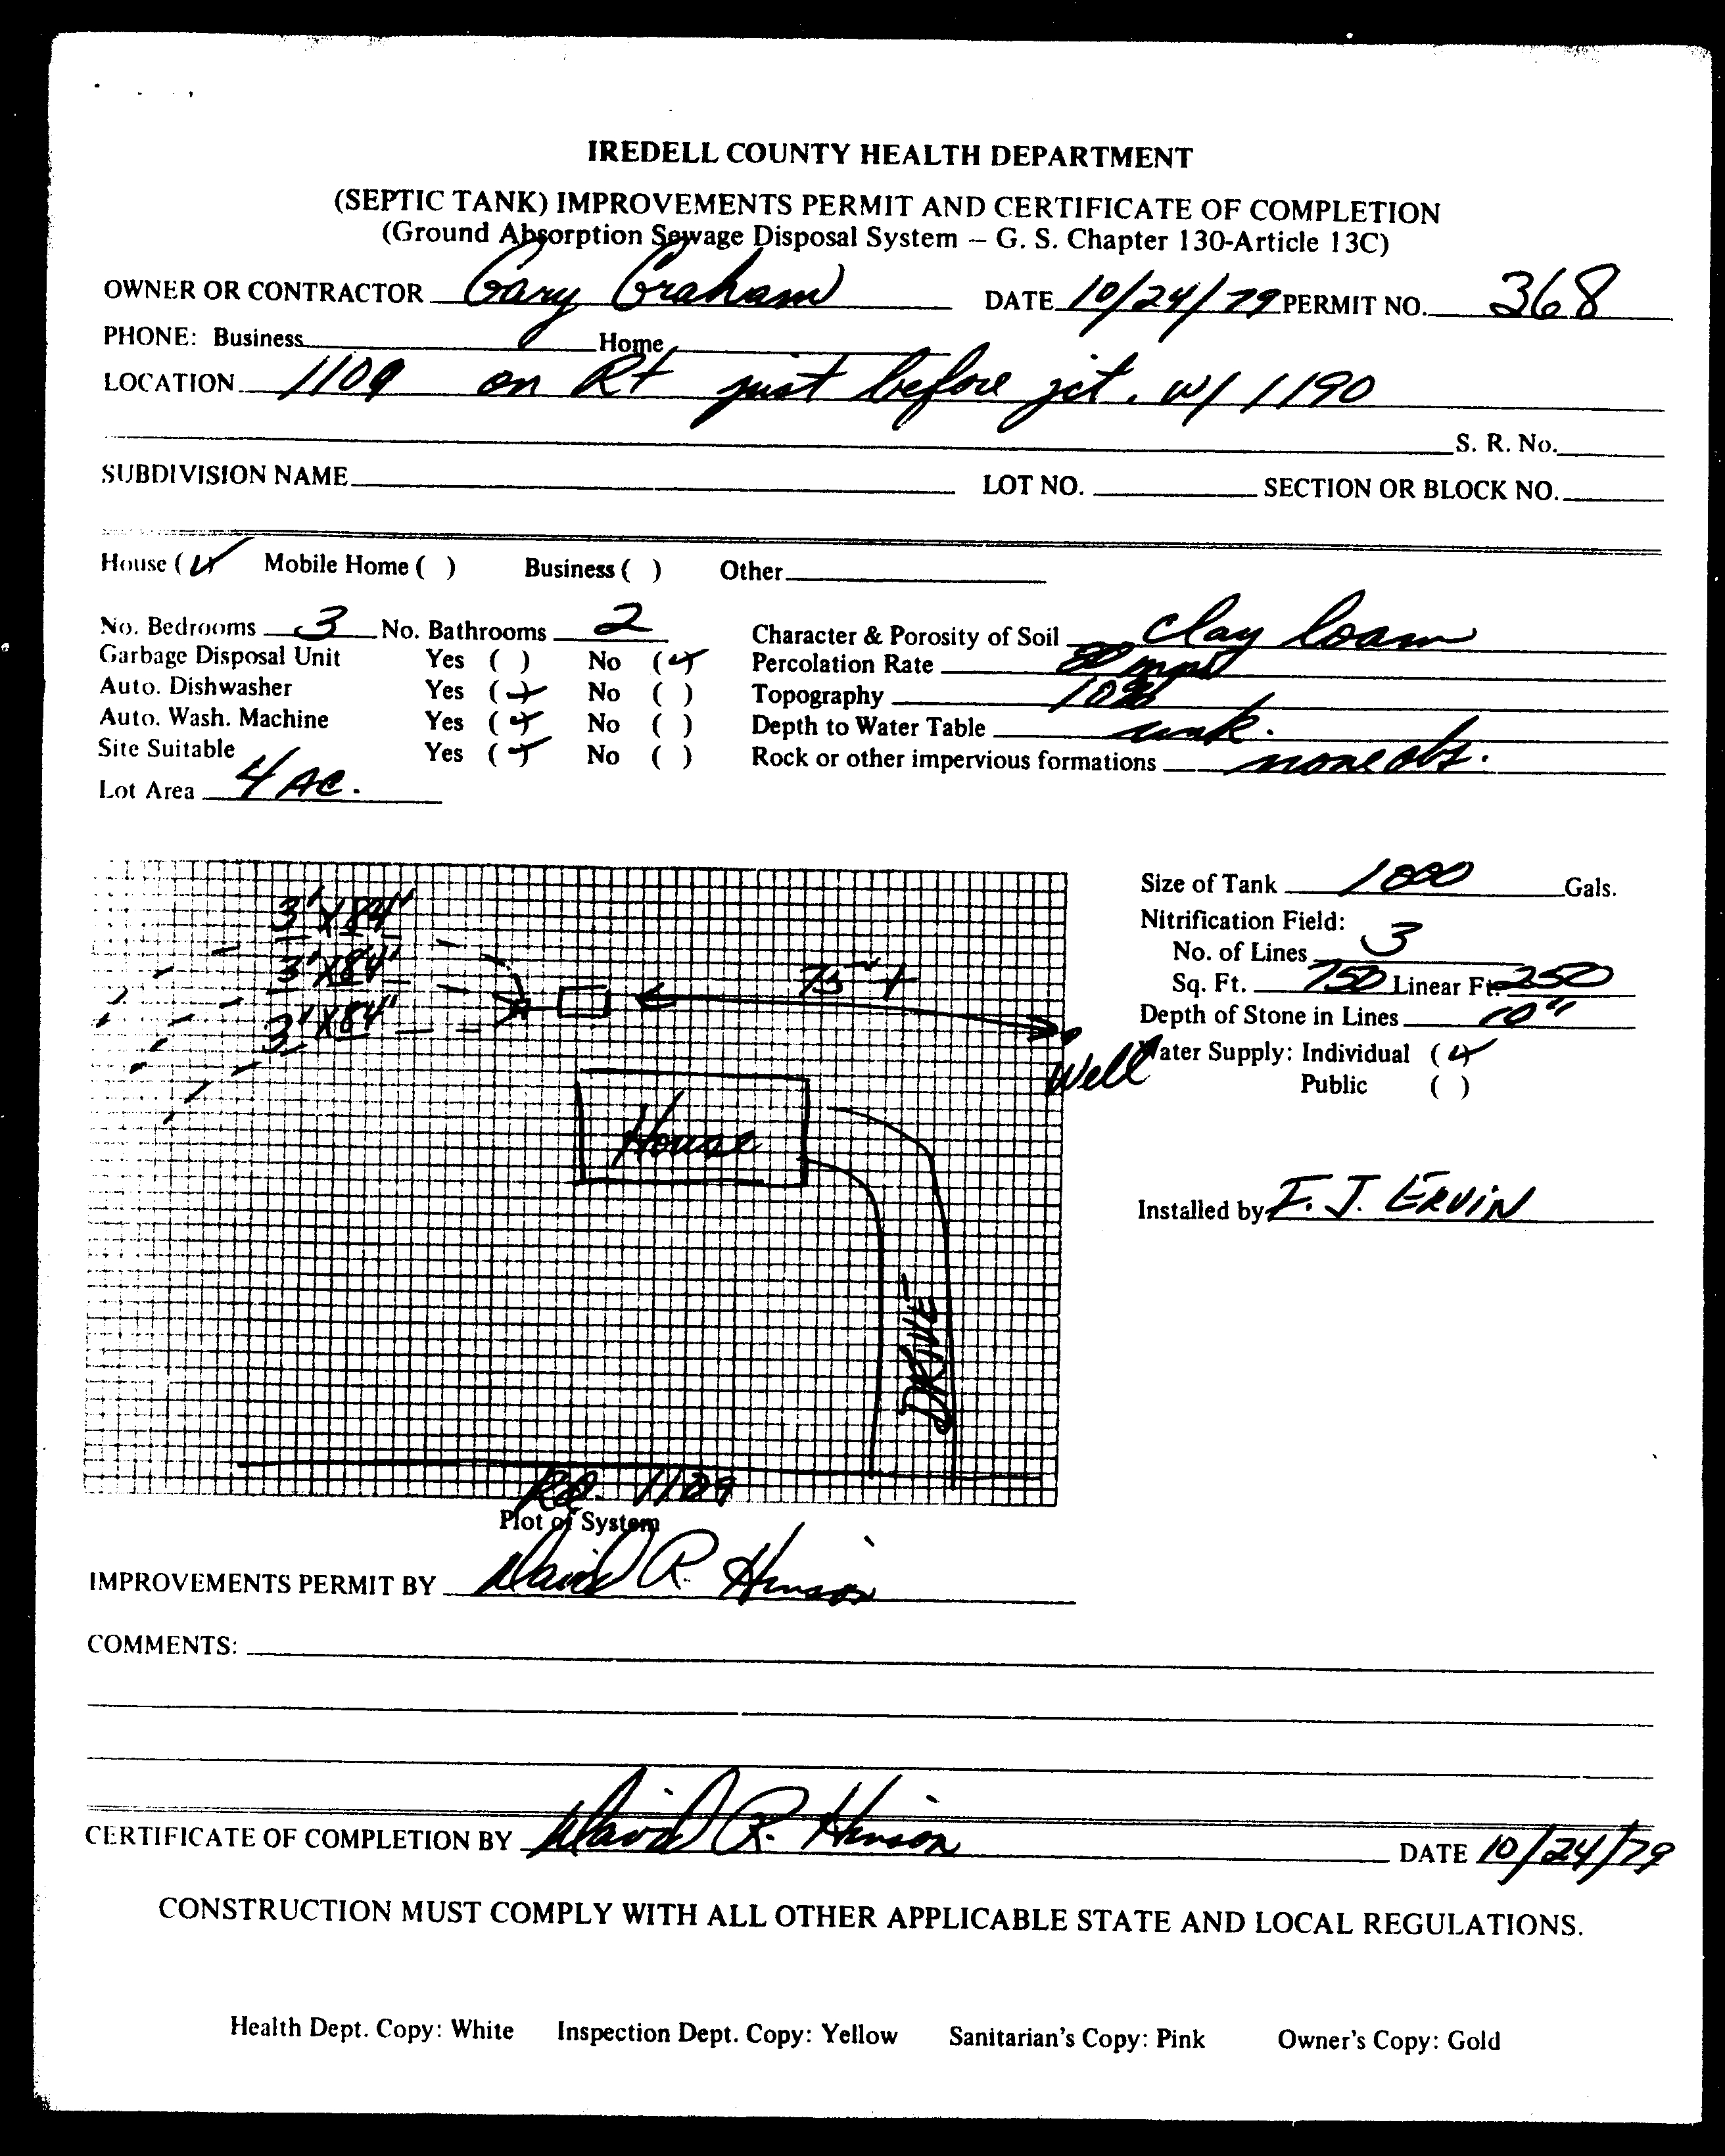 IREDELL COUNTY HEALTH DEPARTMENT
(SEPTIC TANK) IMPROVEMENTS PERMIT AND CERTIFICATE OF COMPLETION
(Ground Absorption Sewage Disposal System – G. S. Chapter 130-Article 13C)
OWNER OR CONTRACTOR Gary Graham DATE 10/24/79 PERMIT NO. 368
PHONE: Business Home
LOCATION 1109 on Rt just before jct. w/ 1190
S. R. No.
SUBDIVISION NAME LOT NO. SECTION OR BLOCK NO.
House (✓) Mobile Home ( ) Business ( ) Other
No. Bedrooms 3 No. Bathrooms 2 Character & Porosity of Soil clay loam
Garbage Disposal Unit Yes ( ) No (✓) Percolation Rate 80 mpi
Auto. Dishwasher Yes (✓) No ( ) Topography 10%
Auto. Wash. Machine Yes (✓) No ( ) Depth to Water Table unk.
Site Suitable Yes (✓) No ( ) Rock or other impervious formations none obs.
Lot Area 4 AC.
Size of Tank 1000 Gals.
Nitrification Field:
No. of Lines 3
Sq. Ft. 750 Linear Ft. 250
Depth of Stone in Lines 10"
Water Supply: Individual (✓)
Public ( )
Installed by F. J. ERVIN
3'X84'
3'X84'
3'X84'
75' +
Well
House
DRIVE
RD. 1109
Plot of System
IMPROVEMENTS PERMIT BY David R. Hinson
COMMENTS:
CERTIFICATE OF COMPLETION BY David R. Hinson DATE 10/24/79
CONSTRUCTION MUST COMPLY WITH ALL OTHER APPLICABLE STATE AND LOCAL REGULATIONS.
Health Dept. Copy: White Inspection Dept. Copy: Yellow Sanitarian's Copy: Pink Owner's Copy: Gold